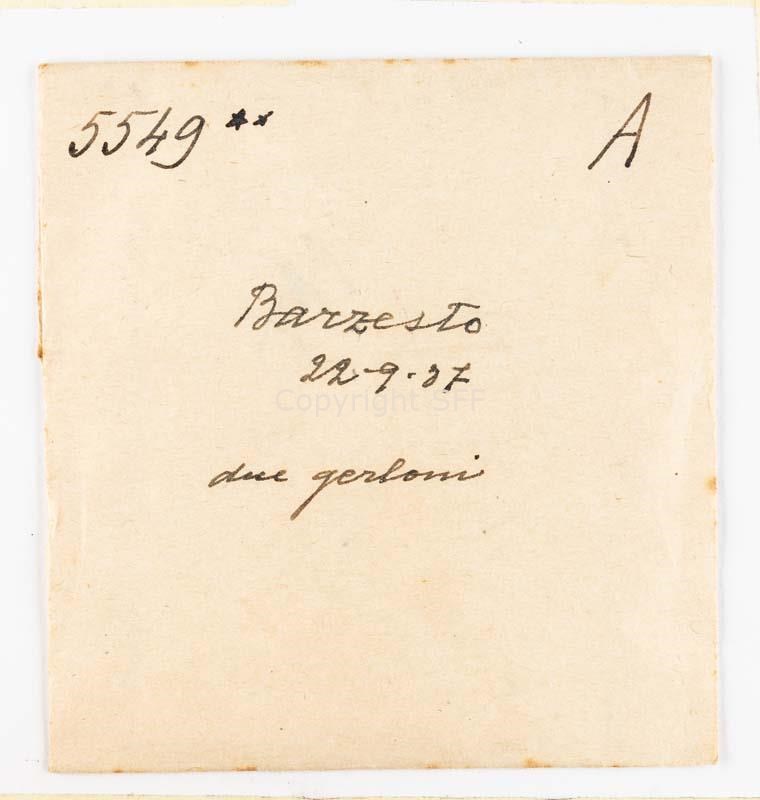 5549 ** A
Barzesto
22-9-37
Copyright SFF
due gerloni